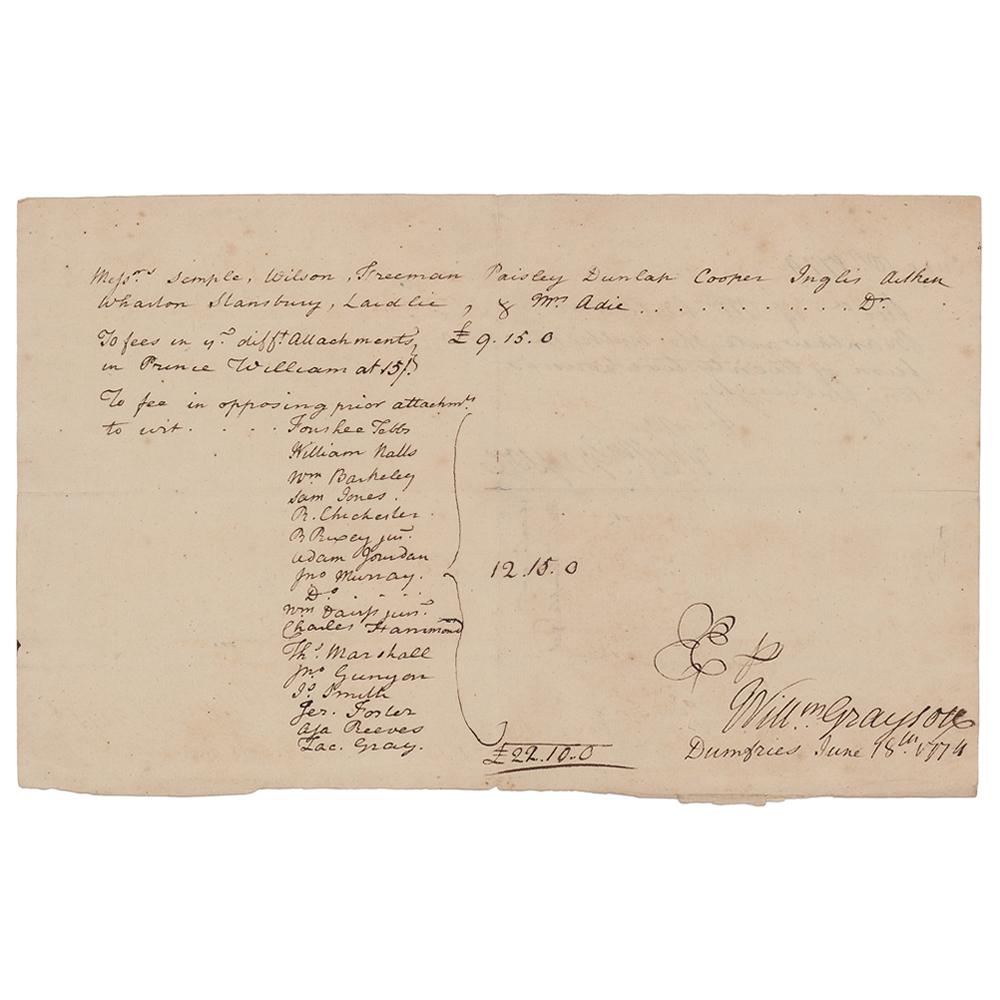 Messrs Semple, Wilson, Freeman Paisley Dunlap Cooper Inglis Aitken
Wharton Stansbury, Laidlie, & Mrs Adie . . . . . . . . . . . . Dr.
To fees in yr. difft. Attachments, £ 9.15.0
in Prince William at 15/.
To fee in opposing prior attachmts
to wit . . . . Foushee Tebbs
William Nalls
Wm Barkeley
Sam Jones.
R. Chichester.
R Rixey junr.
Adam Jourdan
Jno Murray. 12.15.0
Do. . . .
Wm Davis junr.
Charles Hammond
Ths. Marshall
Jno Gunyon
Js. Smith
Jer. Foster
Asa Reeves
Zac. Gray.
£22.10.0
E p
Willm Grayson
Dumfries June 18th 1774